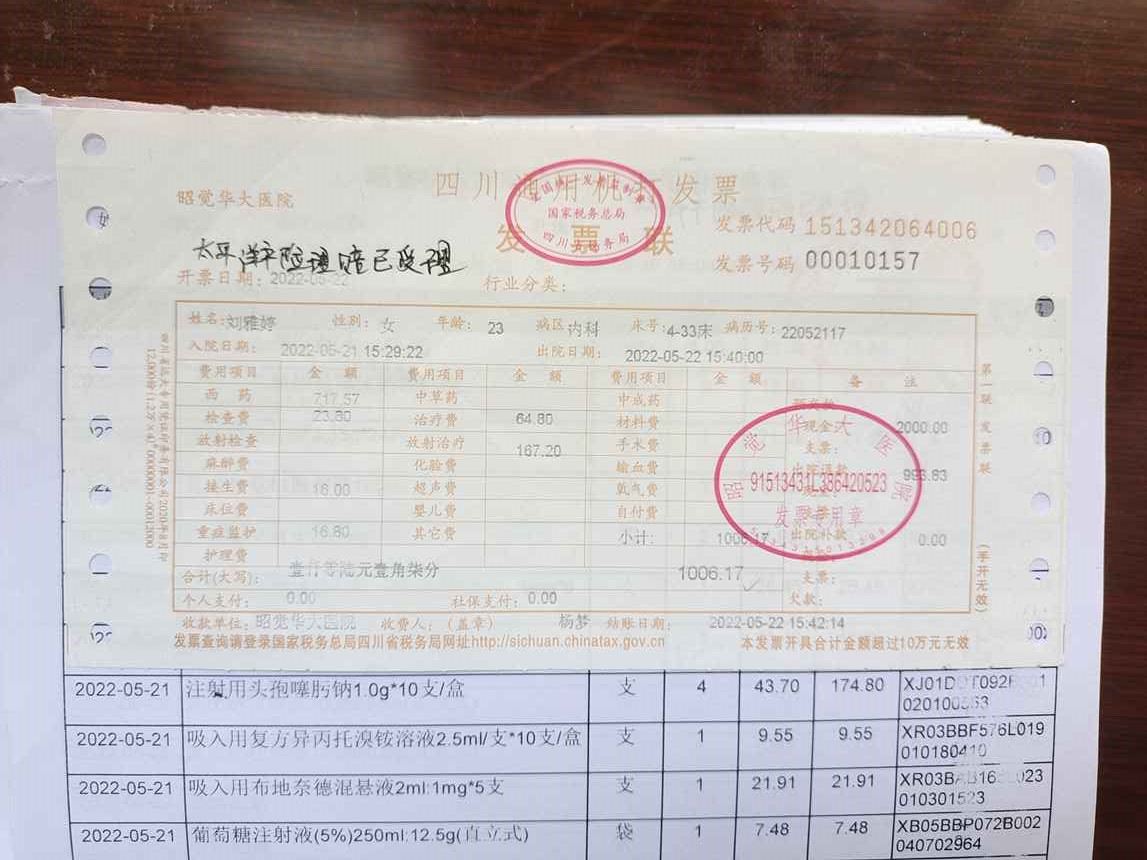 四川通用机打发票
昭觉华大医院
国家税务总局
发票联
发票代码 151342064006
发票号码 00010157
太平洋产险理赔已受理
开票日期: 2022-05-22
行业分类:
姓名: 刘雅婷 性别: 女 年龄: 23 病区 内科 床号: 4-33床 病历号: 22052117
入院日期: 2022-05-21 15:29:22 出院日期: 2022-05-22 15:40:00
费用项目 金额 费用项目 金额 费用项目 金额 备注
西药 717.57 中草药 中成药
检查费 23.80 治疗费 64.80 材料费 现金: 2000.00
放射检查 放射治疗 167.20 手术费 支票:
麻醉费 化验费 输血费 出院退款 993.83
接生费 16.00 超声费 氧气费
床位费 婴儿费 自付费
重症监护 16.80 其它费 小计: 1006.17 出院补款 0.00
护理费
合计(大写): 壹仟零陆元壹角柒分 1006.17 支票:
个人支付: 0.00 社保支付: 0.00 欠款:
收款单位: 昭觉华大医院 收费人: (盖章) 杨梦 结账日期: 2022-05-22 15:42:14
发票查询请登录国家税务总局四川省税务局网址http://sichuan.chinatax.gov.cn 本发票开具合计金额超过10万元无效
昭觉华大医院
91513431L386420523
发票专用章
第一联 发票联
(手开无效)
2022-05-21 注射用头孢噻肟钠1.0g*10支/盒 支 4 43.70 174.80
2022-05-21 吸入用复方异丙托溴铵溶液2.5ml/支*10支/盒 支 1 9.55 9.55 XR03BBF576L019
010180410
2022-05-21 吸入用布地奈德混悬液2ml:1mg*5支 支 1 21.91 21.91
010301523
2022-05-21 葡萄糖注射液(5%)250ml:12.5g(直立式) 袋 1 7.48 7.48 XB05BBP072B002
040702964